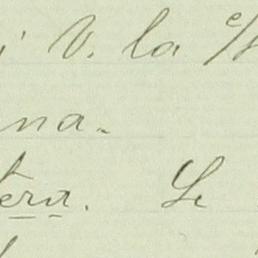 i V. la
na-
tera. Le